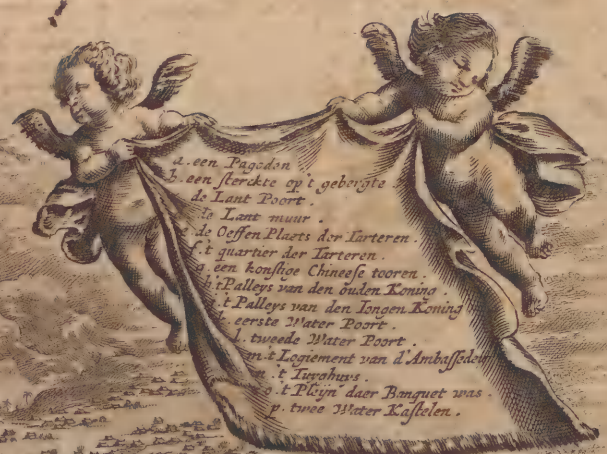 a. een Pagoden
b. een sterckte op 't gebergte
de Lant Poort.
de Lant muur.
e. de Oeffen Plaets der Tarteren.
f. 't quartier der Tarteren.
g. een konstige Chineese tooren.
h. 't Palleys van den ouden Koning.
't Palleys van den Iongen Koning
k. eerste Water Poort.
l. tweede Water Poort.
m. 't Logiement van d'Ambassadeur
n. 't Tuyghuys.
o. 't Pleyn daer Banquet was.
p. twee Water Kastelen.